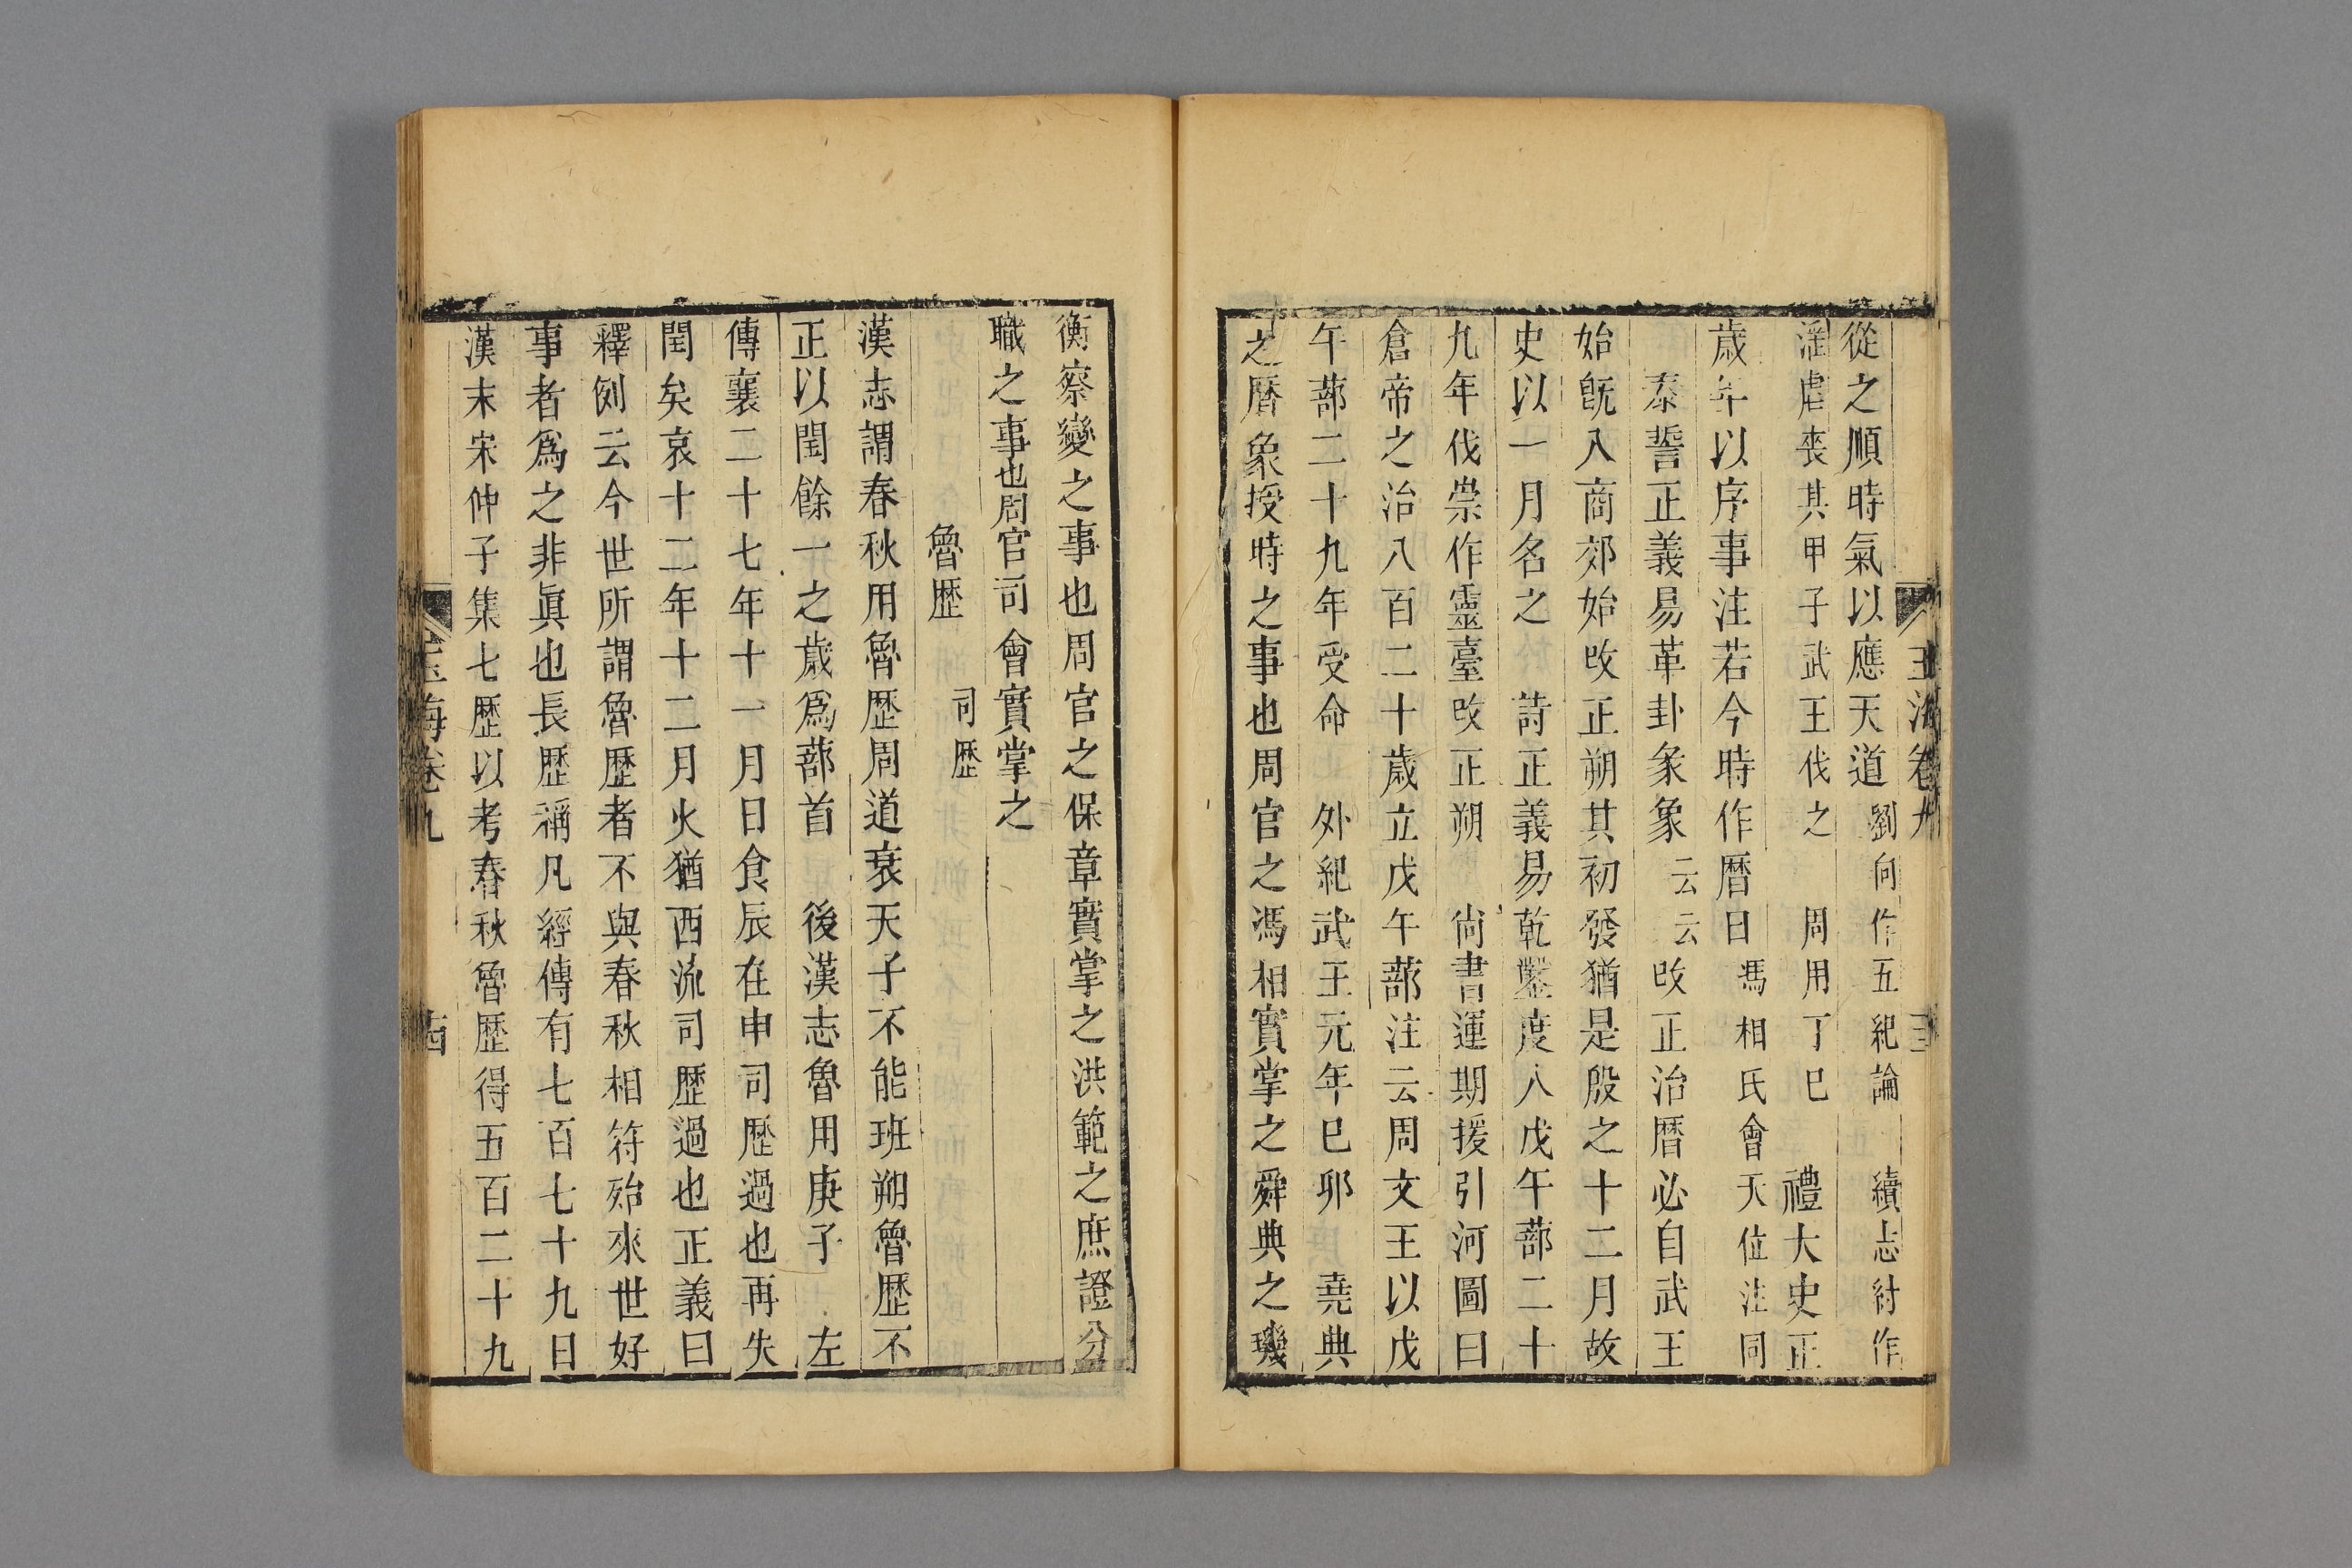 玉海卷九
從之順時氣以應天道劉向作五紀論 續志紂作
淫虐喪其甲子武王伐之 周用丁巳 禮大史正
歲年以序事注若今時作曆日馮相氏會天位注同
泰誓正義易革卦彖象云云改正治曆必自武王
始旣入商郊始改正朔其初發猶是殷之十二月故
史以一月名之 詩正義易乾鑿度八戊午蔀二十
九年伐崇作靈臺改正朔 尙書運期援引河圖曰
倉帝之治八百二十歲立戊午蔀注云周文王以戊
午蔀二十九年受命 外紀武王元年巳卯 堯典
之曆象授時之事也周官之馮相實掌之舜典之璣
衡察變之事也周官之保章實掌之洪範之庶證分
職之事也周官司會實掌之
魯歷 司歷
漢志謂春秋用魯歷周道衰天子不能班朔魯歷不
正以閏餘一之歲爲蔀首 後漢志魯用庚子 左
傳襄二十七年十一月日食辰在申司歷過也再失
閏矣哀十二年十二月火猶西流司歷過也正義曰
釋例云今世所謂魯歷者不與春秋相符殆來世好
事者爲之非眞也長歷稱凡經傳有七百七十九日
漢末宋仲子集七歷以考春秋魯歷得五百二十九
玉海卷九 十四